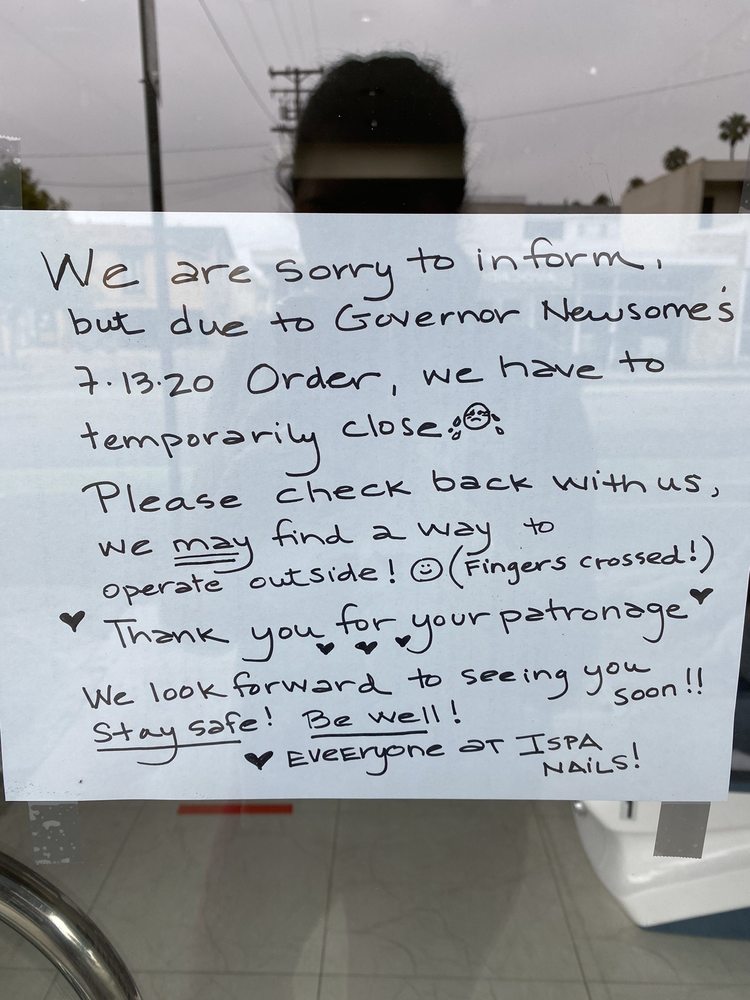 We are sorry to inform,
but due to Governor Newsome's
7.13.20 Order, we have to
temporarily close.
Please check back with us,
we may find a way to
operate outside! (Fingers crossed!)
Thank you for your patronage
We look forward to seeing you
soon!!
Stay safe! Be well!
EVEERYONE AT ISPA
NAILS!